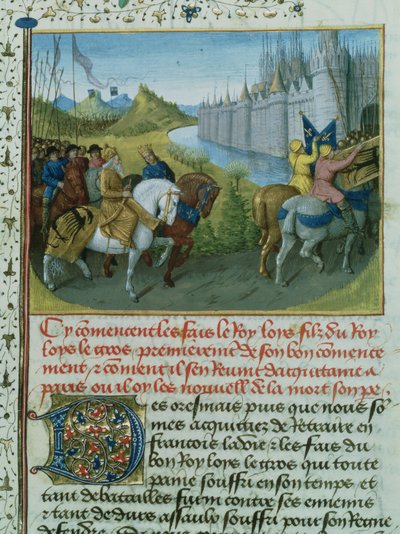 Cy commencent les fais le Roy loys filz du Roy
loys le gros premierement de son bon commence
ment & coment il sen Reuint dacquitaine a
paris ou il oy les nouuell' de la mort son pe
Des oresmais puis que nous so
mes acquittez de Retraire en
francois la vie & les fais du
bon Roy loys le gros qui toute
paine souffri en son temps et
tant de batailles fu'm contre ses ennemis
& tant de durs assaulx souffri pour son Regne
defendre